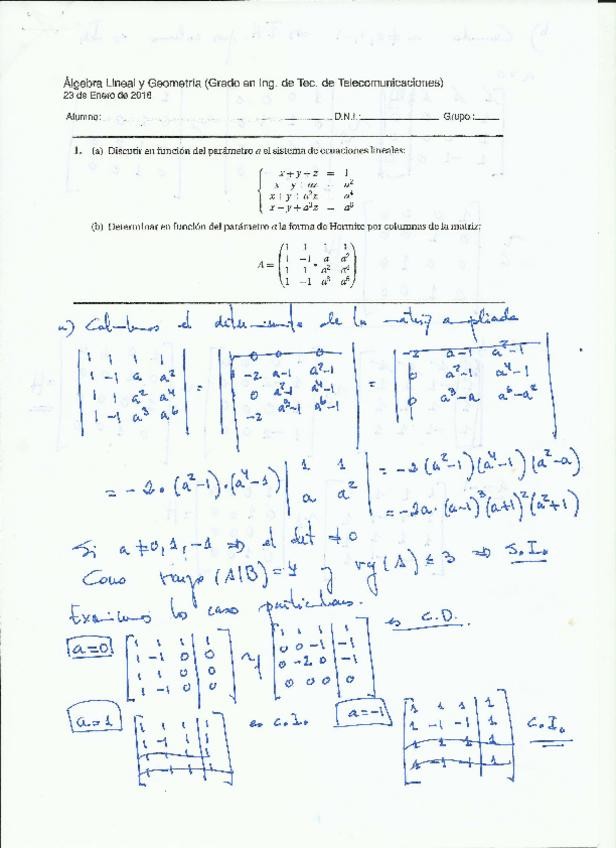 Álgebra Lineal y Geometría (Grado en Ing. de Tec. de Telecomunicaciones)
23 de Enero de 2016
Alumno: D.N.I.: Grupo:
1. (a) Discutir en función del parámetro a el sistema de ecuaciones lineales:
x + y + z = 1
x − y + az = a²
x + y + a²z = a⁴
x − y + a³z = a⁶
(b) Determinar en función del parámetro a la forma de Hermite por columnas de la matriz:
A =
1 1 1 1
1 −1 a a²
1 1 a² a⁴
1 −1 a³ a⁶
a) Calculamos el determinante de la matriz ampliada
|1 1 1 1| = |0 0 0| = |-2 a-1 a²-1|
|1 -1 a a²| |-2 a-1 a²-1| |0 a²-1 a⁴-1|
|1 1 a² a⁴| |0 a²-1 a⁴-1| |0 a³-a a⁶-a²|
|1 -1 a³ a⁶| |-2 a³-1 a⁶-1|
= -2·(a²-1)·(a⁴-1) |1 1| = -2(a²-1)(a⁴-1)(a²-a)
|a a²| = -2a·(a-1)³(a+1)²(a²+1)
Si a ≠ 0, 1, -1 ⇒ el det ≠ 0
Como rango (A|B) = 4 y rg(A) ≤ 3 ⇒ S.I.
Examinamos los caso particulares.
a=0 [1 1 1 | 1] ~ [1 1 1 | 1] es C.D.
[1 -1 0 | 0] [0 0 -1 | -1]
[1 1 0 | 0] [0 -2 0 | -1]
[1 -1 0 | 0] [0 0 0 | 0]
a=1 [1 1 1 | 1] es C.I. a=-1 [1 1 1 | 1] C.I.
[1 -1 1 | 1] [1 -1 -1 | 1]
[1 1 1 | 1] [1 1 1 | 1]
[1 -1 1 | 1] [1 -1 -1 | 1]